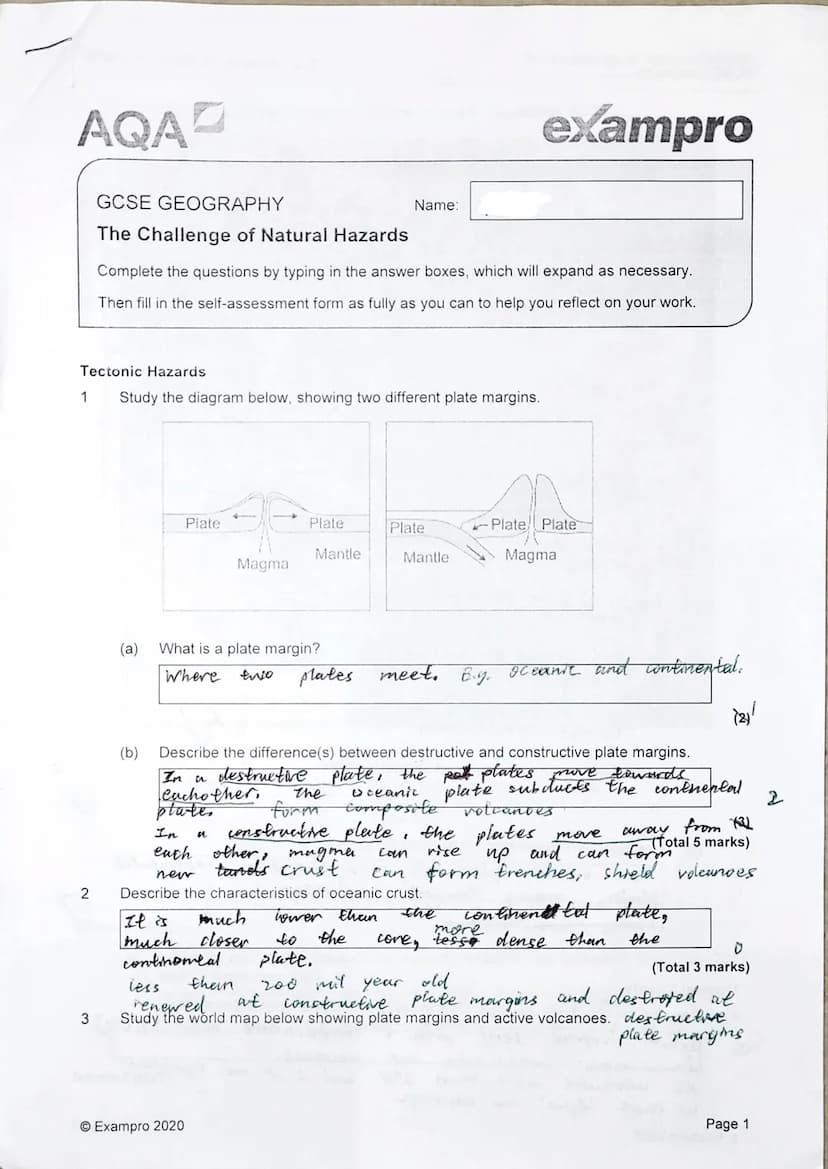 AQA
exampro
GCSE GEOGRAPHY
Name:
The Challenge of Natural Hazards
Complete the questions by typing in the answer boxes, which will expand as necessary.
Then fill in the self-assessment form as fully as you can to help you reflect on your work.
Tectonic Hazards
1 Study the diagram below, showing two different plate margins.
Plate Plate
Magma Mantle
Plate Plate Plate
Mantle Magma
(a) What is a plate margin?
Where two plates meet. E.g. oceanic and continental.
(2) 1
(b) Describe the difference(s) between destructive and constructive plate margins.
In a destructive plate, the plates move towards
eachother. The oceanic plate subducts the continental 2
plate. form composite volcanoes
In a constructive plate, the plates move away from (3)
(Total 5 marks)
each other, magma can rise up and can form
new crust can form trenches, shield volcanoes
2 Describe the characteristics of oceanic crust.
It is much lower than the continental plate,
much closer to the core, more dense than the
continental plate. 0
(Total 3 marks)
less than 200 mil year old
renewed at constructive plate margins and destroyed at
3 Study the world map below showing plate margins and active volcanoes. destructive
plate margins
© Exampro 2020 Page 1